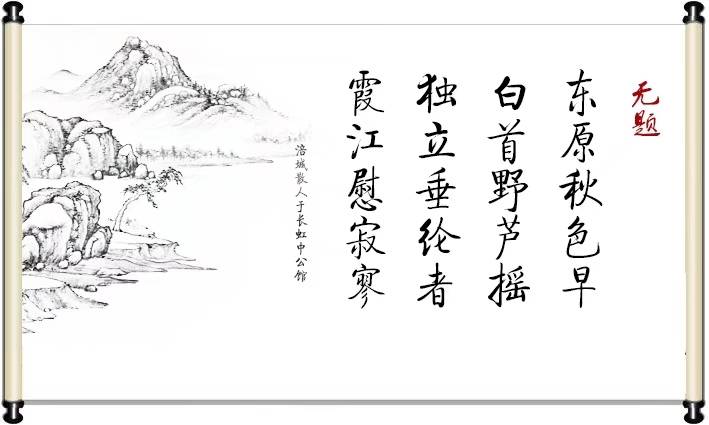 无题
东原秋色早
白首野芦摇
独立垂纶者
霞江慰寂寥
涪城散人于长虹中公馆